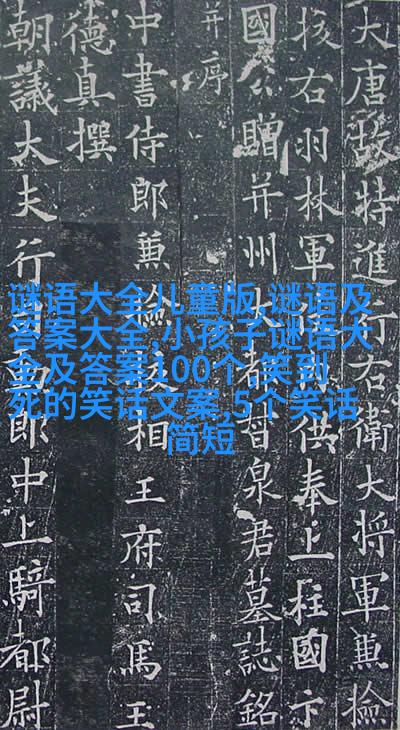 大唐故特進行右衛大將軍兼撿
校右羽林軍供奉上柱國卞
國公贈并州大都督泉君墓誌銘
并序
中書侍郎兼撿校相王府司馬王
德真撰
朝議大夫行司勳郎中上騎都尉
谜语大全儿童版,谜语及
答案大全,小孩子谜语大
全及答案100个,笑到
死的笑话文案,5个笑话
简短